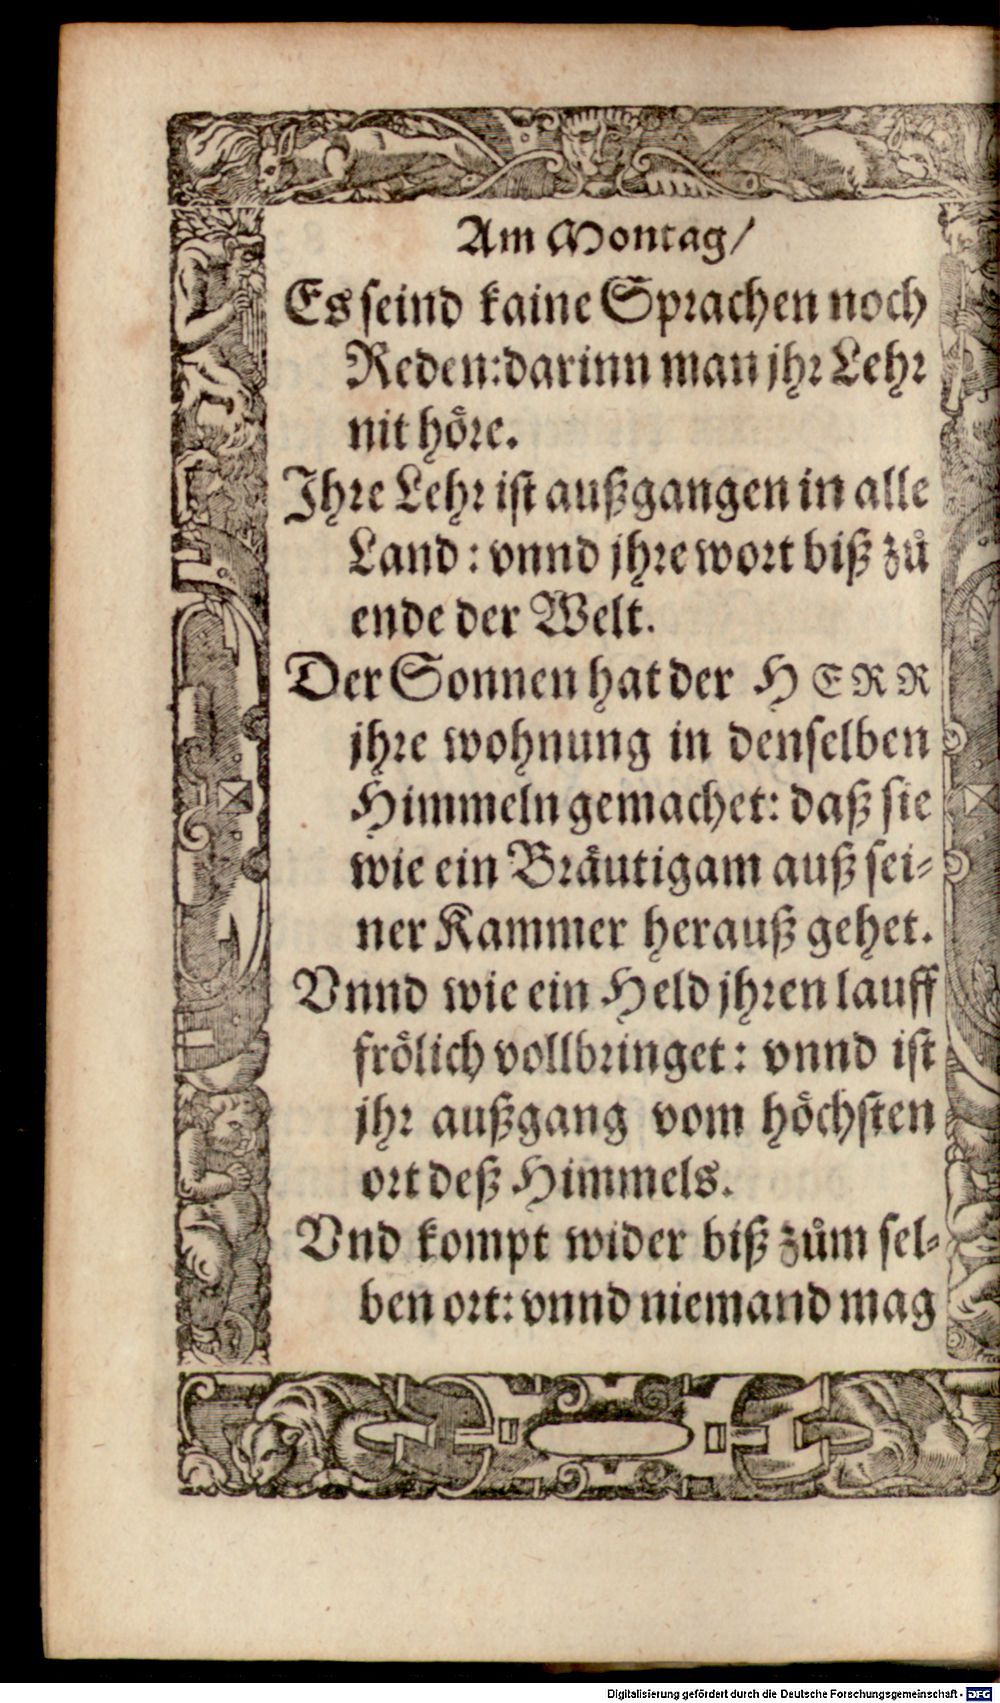 Am Montag/
Es seind kaine Sprachen noch
Reden: darinn man jhr Lehr
nit höre.
Jhre Lehr ist außgangen in alle
Land: vnnd jhre wort biß zů
ende der Welt.
Der Sonnen hat der HERR
jhre wohnung in denselben
Himmeln gemachet: daß sie
wie ein Bräutigam auß sei⸗
ner Kammer herauß gehet.
Vnnd wie ein Held jhren lauff
frölich vollbringet: vnnd ist
jhr außgang vom höchsten
ort deß Himmels.
Vnd kompt wider biß zům sel⸗
ben ort: vnnd niemand mag
Digitalisierung gefördert durch die Deutsche Forschungsgemeinschaft - DFG